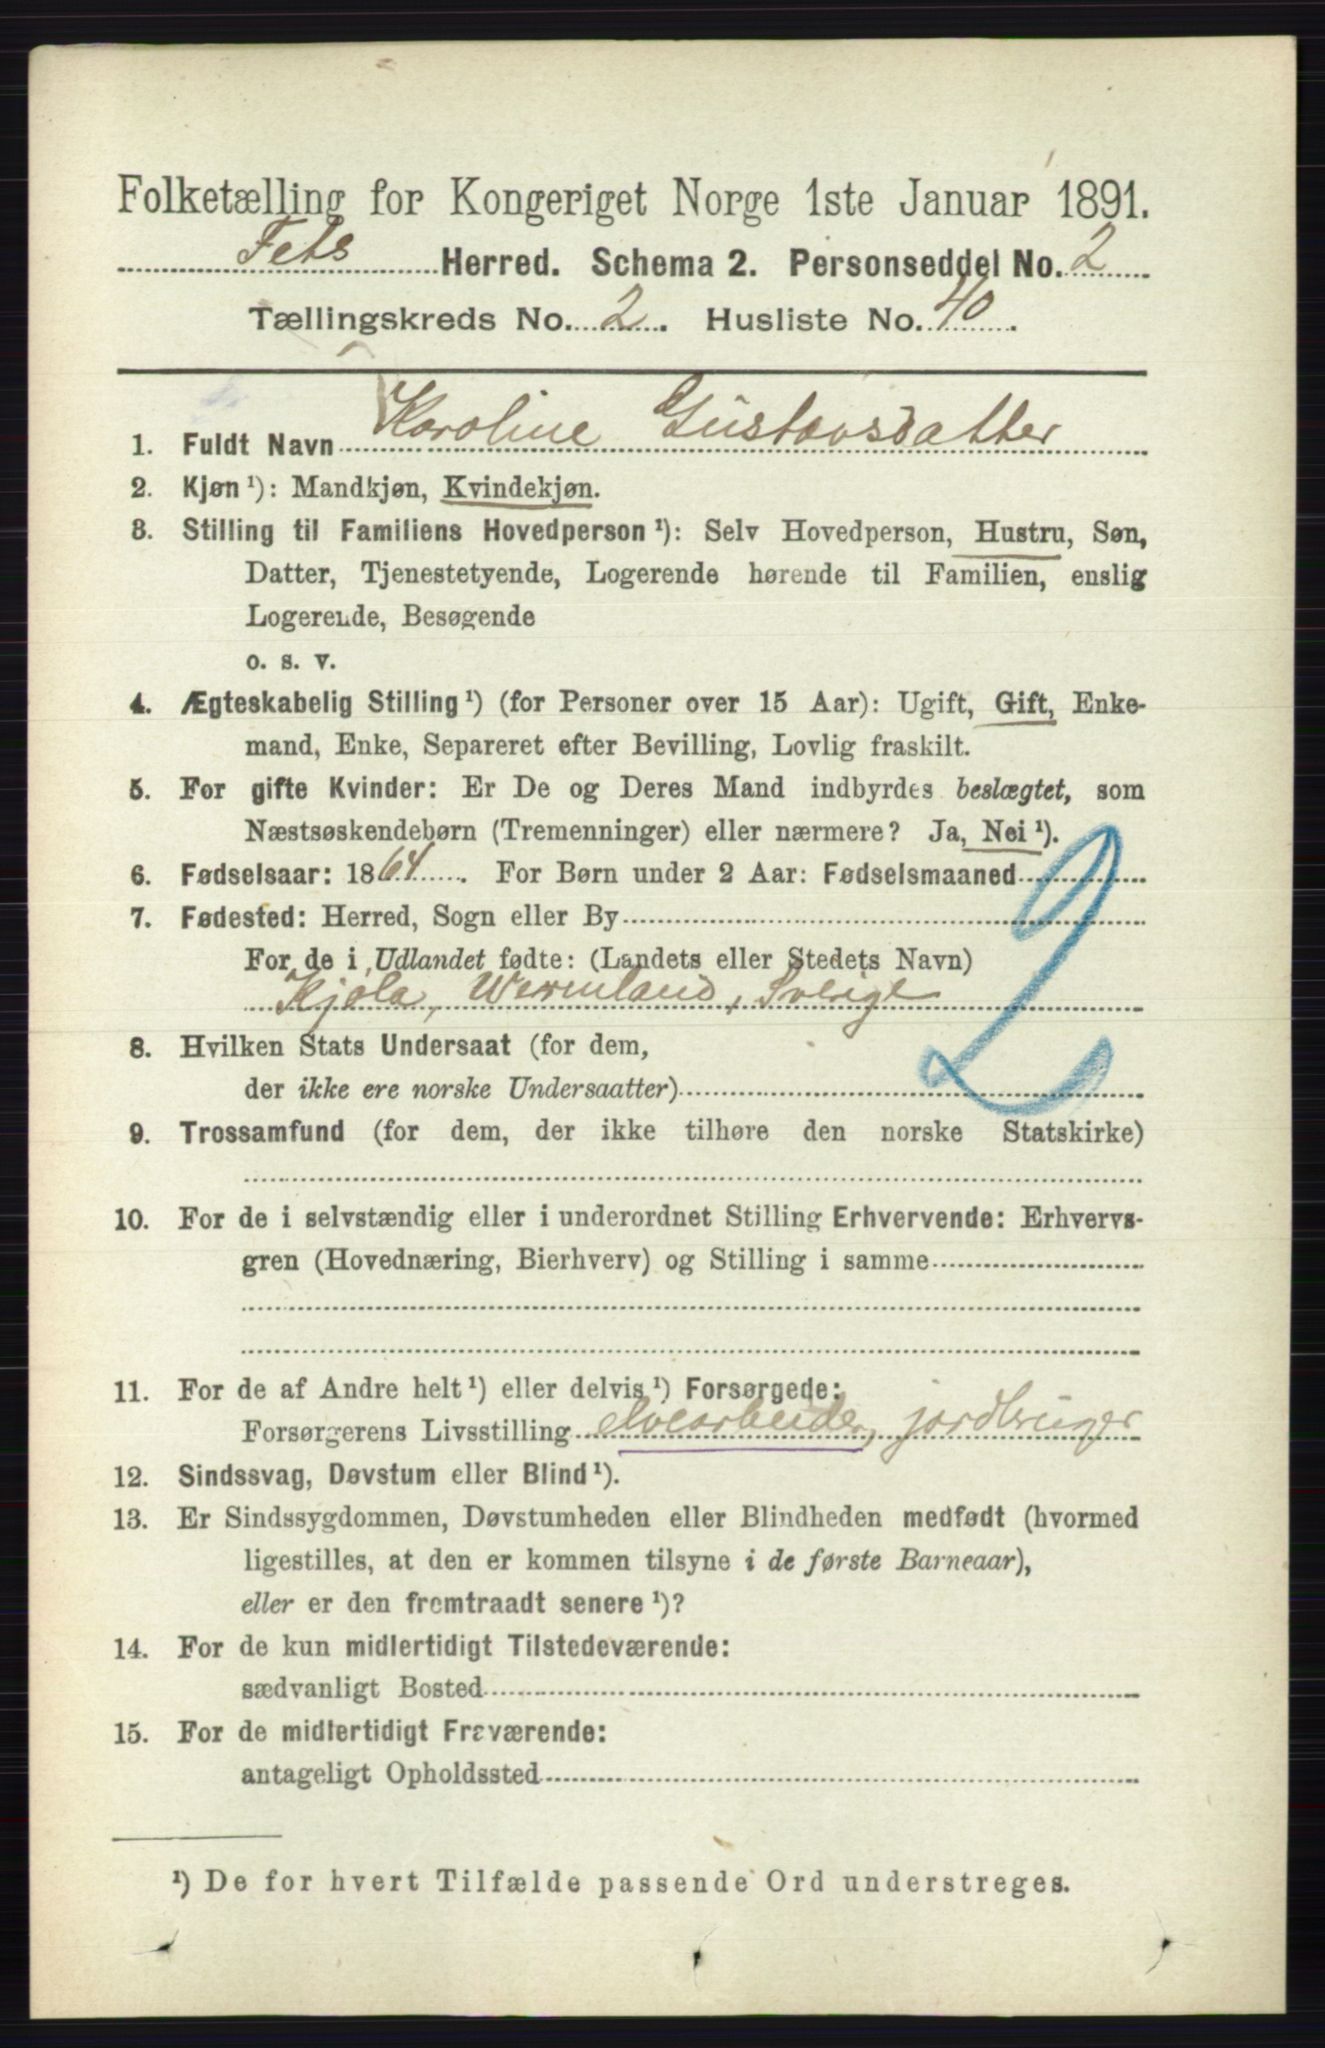 Folketælling for Kongeriget Norge 1ste Januar 1891.
Fets Herred. Schema 2. Personseddel No. 2
Tællingskreds No. 2. Husliste No. 40.
1. Fuldt Navn Karoline Gustavsdatter
2. Kjøn ¹): Mandkjøn, Kvindekjøn.
3. Stilling til Familiens Hovedperson ¹): Selv Hovedperson, Hustru, Søn,
Datter, Tjenestetyende, Logerende hørende til Familien, enslig
Logerende, Besøgende
o. s. v.
4. Ægteskabelig Stilling ¹) (for Personer over 15 Aar): Ugift, Gift, Enke-
mand, Enke, Separeret efter Bevilling, Lovlig fraskilt.
5. For gifte Kvinder: Er De og Deres Mand indbyrdes beslægtet, som
Næstsøskendebørn (Tremenninger) eller nærmere? Ja, Nei ¹).
6. Fødselsaar: 1864. For Børn under 2 Aar: Fødselsmaaned
7. Fødested: Herred, Sogn eller By
For de i Udlandet fødte: (Landets eller Stedets Navn)
Kjøla, Wermland, Sverige
2
8. Hvilken Stats Undersaat (for dem,
der ikke ere norske Undersaatter)
9. Trossamfund (for dem, der ikke tilhøre den norske Statskirke)
10. For de i selvstændig eller i underordnet Stilling Erhvervende: Erhvervs-
gren (Hovednæring, Bierhverv) og Stilling i samme
11. For de af Andre helt ¹) eller delvis ¹) Forsørgede:
Forsørgerens Livsstilling elvearbeider, jordbruger
12. Sindssvag, Døvstum eller Blind ¹).
13. Er Sindssygdommen, Døvstumheden eller Blindheden medfødt (hvormed
ligestilles, at den er kommen tilsyne i de første Barneaar),
eller er den fremtraadt senere ¹)?
14. For de kun midlertidigt Tilstedeværende:
sædvanligt Bosted
15. For de midlertidigt Fraværende:
antageligt Opholdssted
¹) De for hvert Tilfælde passende Ord understreges.